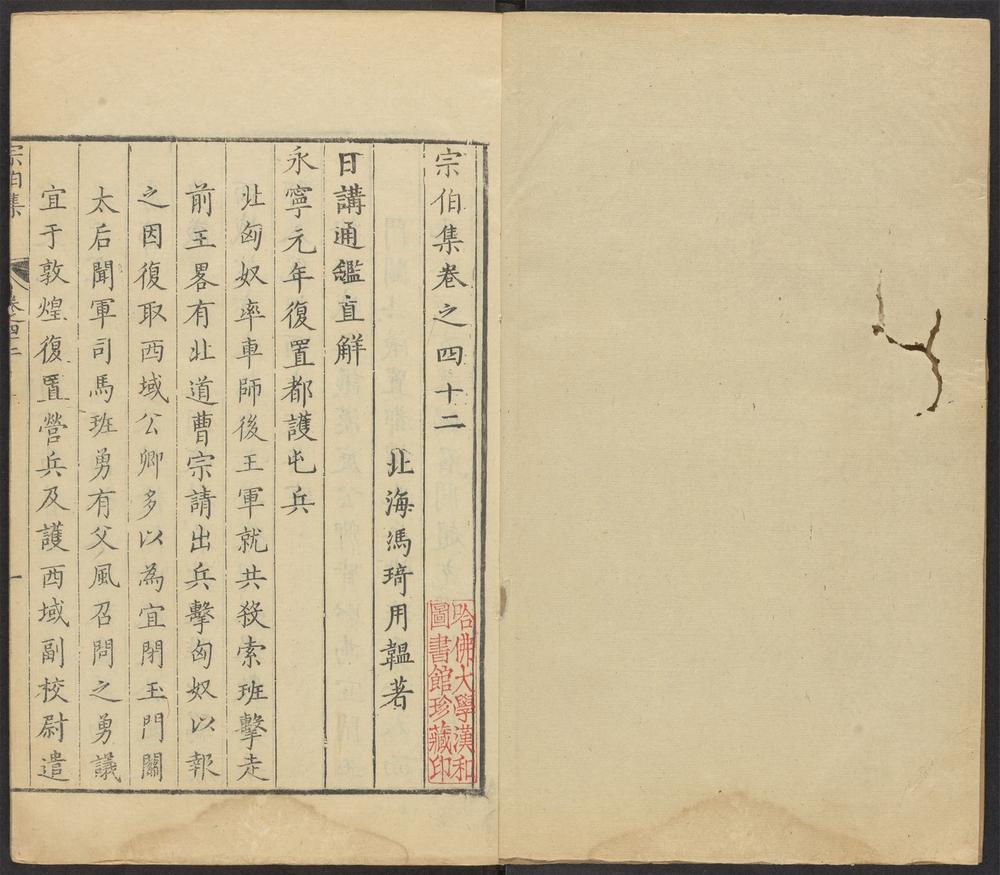 宗伯集卷之四十二
北海馮琦用韞著
日講通鑑直解
永寧元年復置都護屯兵
北匈奴率車師後王軍就共殺索班擊走
前王畧有北道曹宗請出兵擊匈奴以報
之因復取西域公卿多以為宜閉玉門關
太后聞軍司馬班勇有父風召問之勇議
宜于敦煌復置營兵及護西域副校尉遣
宗伯集
卷之四十二
一
哈佛大學漢和
圖書館珍藏印